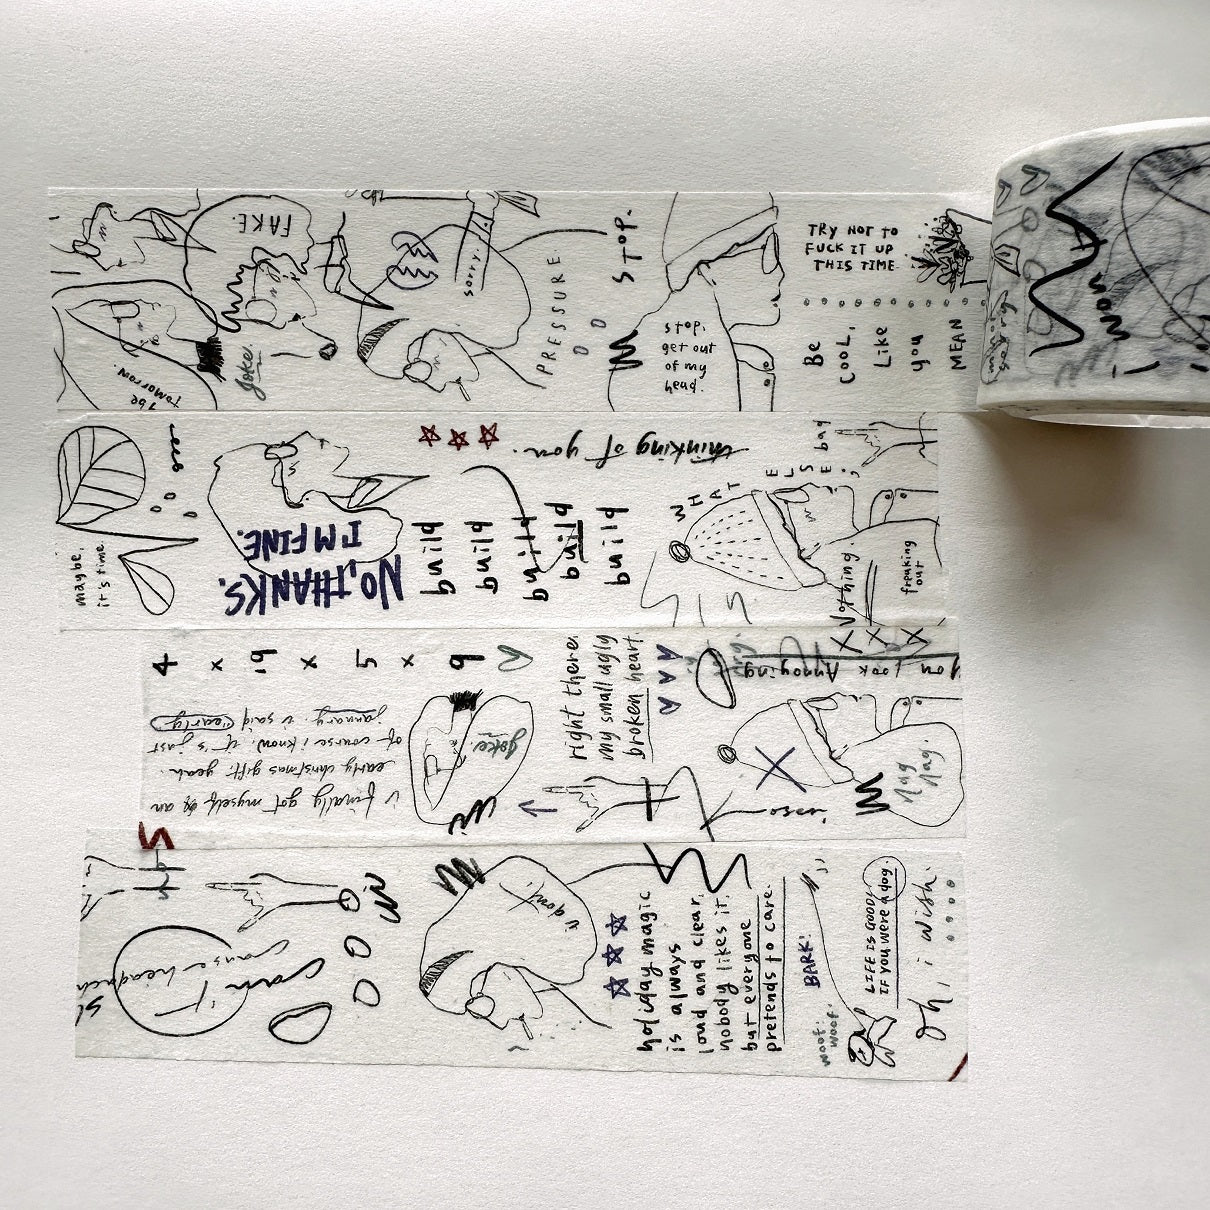 FAKE.
Joke.
be
tomorrow.
sorry.
PRESSURE
STOP.
stop,
get out
of my
head.
TRY NOT TO
FUCK IT UP
THIS TIME.
Be
COOL,
Like
you
MEAN
maybe,
it's time.
I'M FINE.
NO, THANKS.
thinking of you.
build
build
build
build
build
WHAT
ELSE,
bag
Nothing.
freaking
out
4 x 19 x 5 x 9
i finally got myself an
early christmas gift. yeah.
of course i know. it's just
january. i said "early"
Joke.
right there.
my small ugly
broken heart.
you look Annoying
Nag
Nag.
can't
cause headach
i don't.
holiday magic
is always
loud and clear.
nobody likes it.
but everyone
pretends to care.
BARK!
woof!
woof.
LIFE IS GOOD
IF YOU WERE a dog.
oh, i wish.